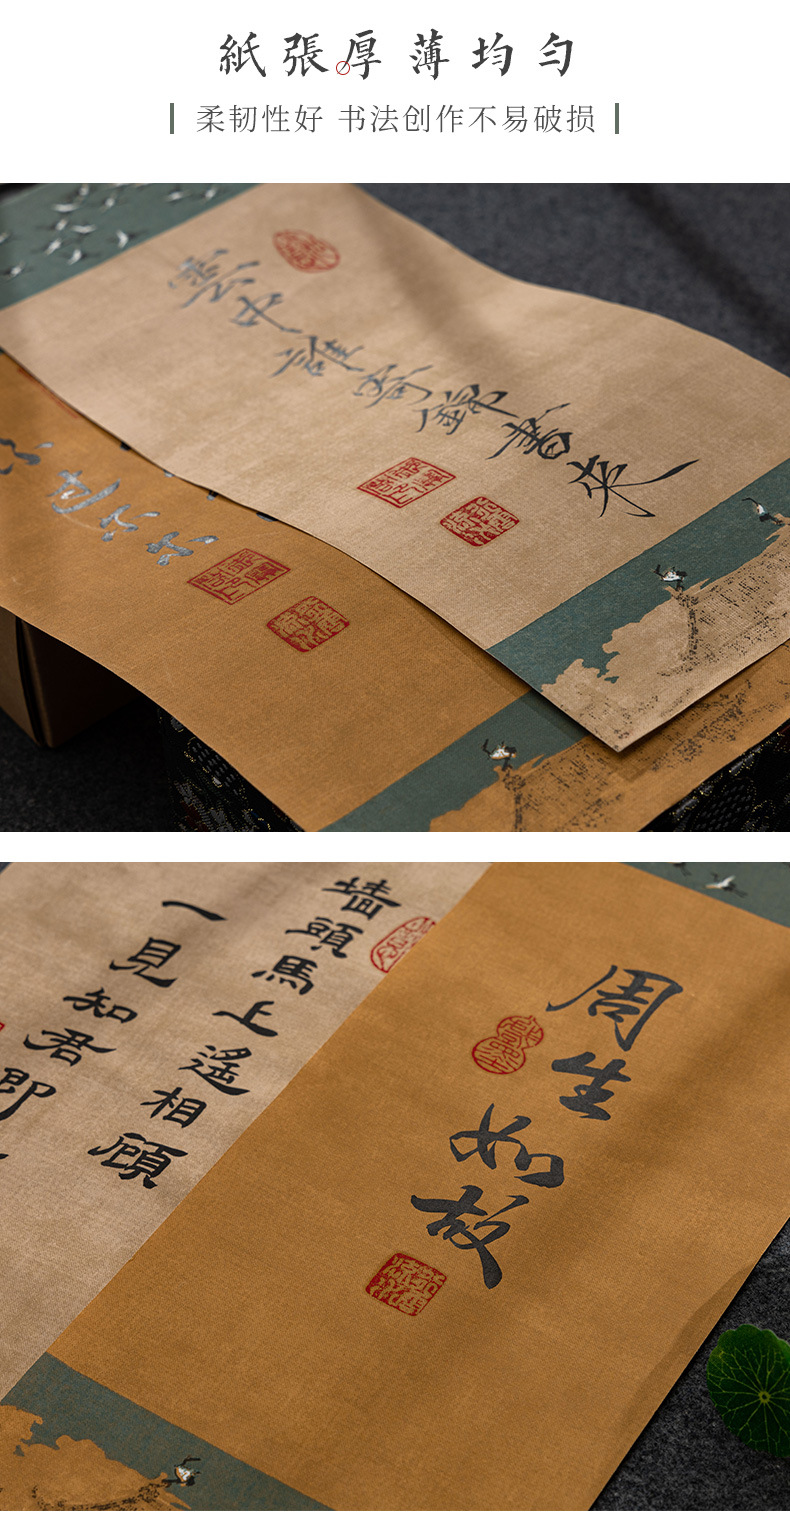 紙張厚薄均勻
柔韧性好 书法创作不易破损
雲中誰寄錦書来
墙頭馬上遙相顧
一見知君即
周生如故